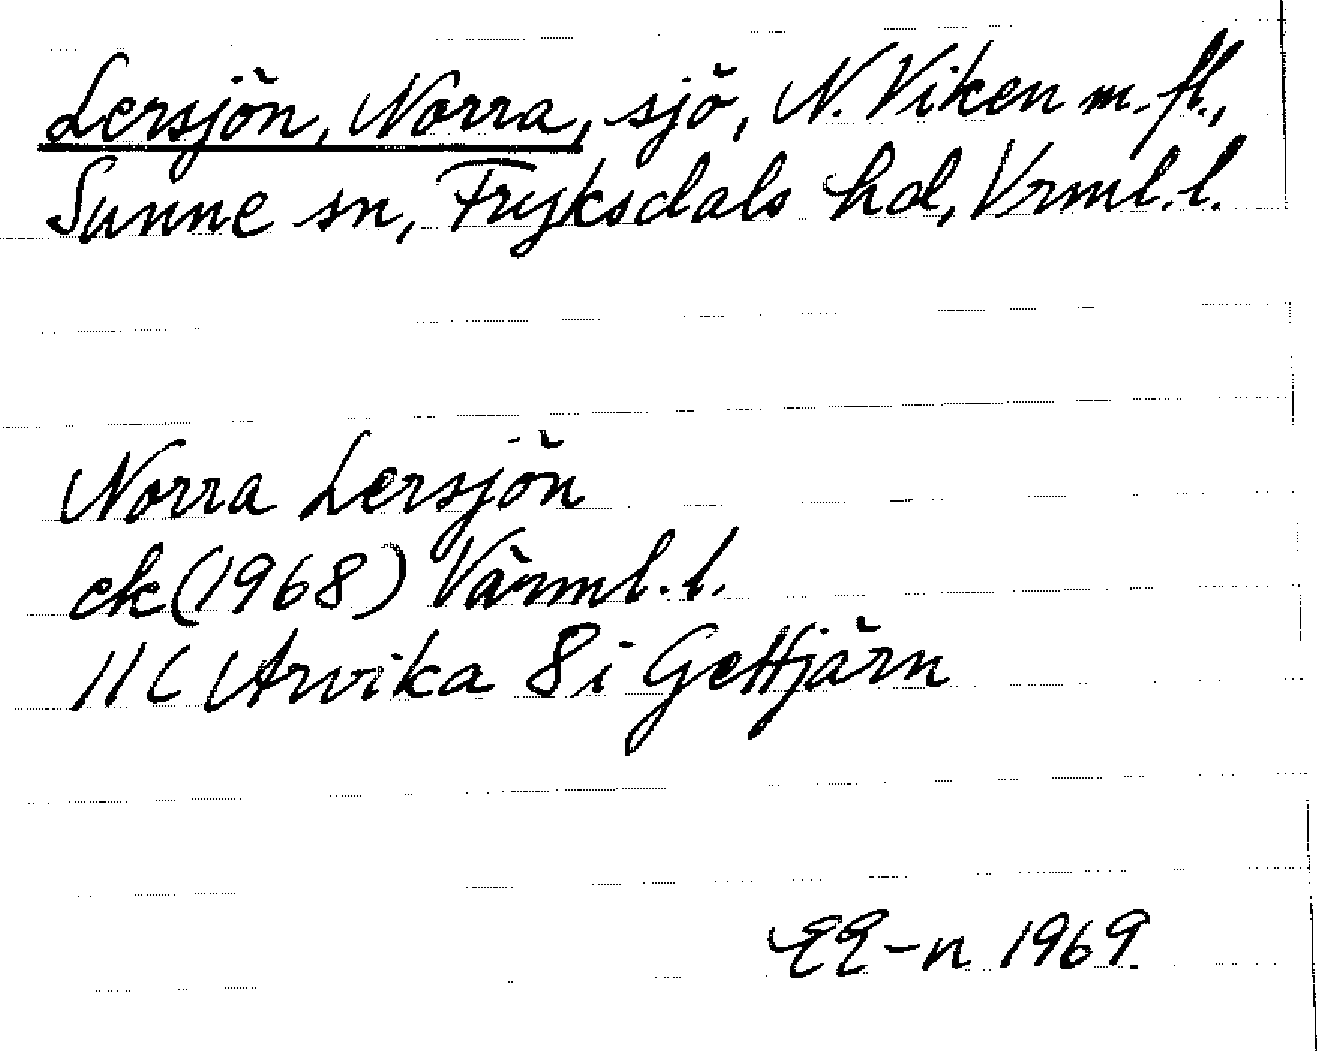 Lersjön, Norra, sjö, N. Viken m.fl.,
Sunne sn, Fryksdals hd, Vrml.l.
Norra Lersjön
ek (1968) Värml.l.
11C Arvika 8i Gettjärn
EE-n 1969.